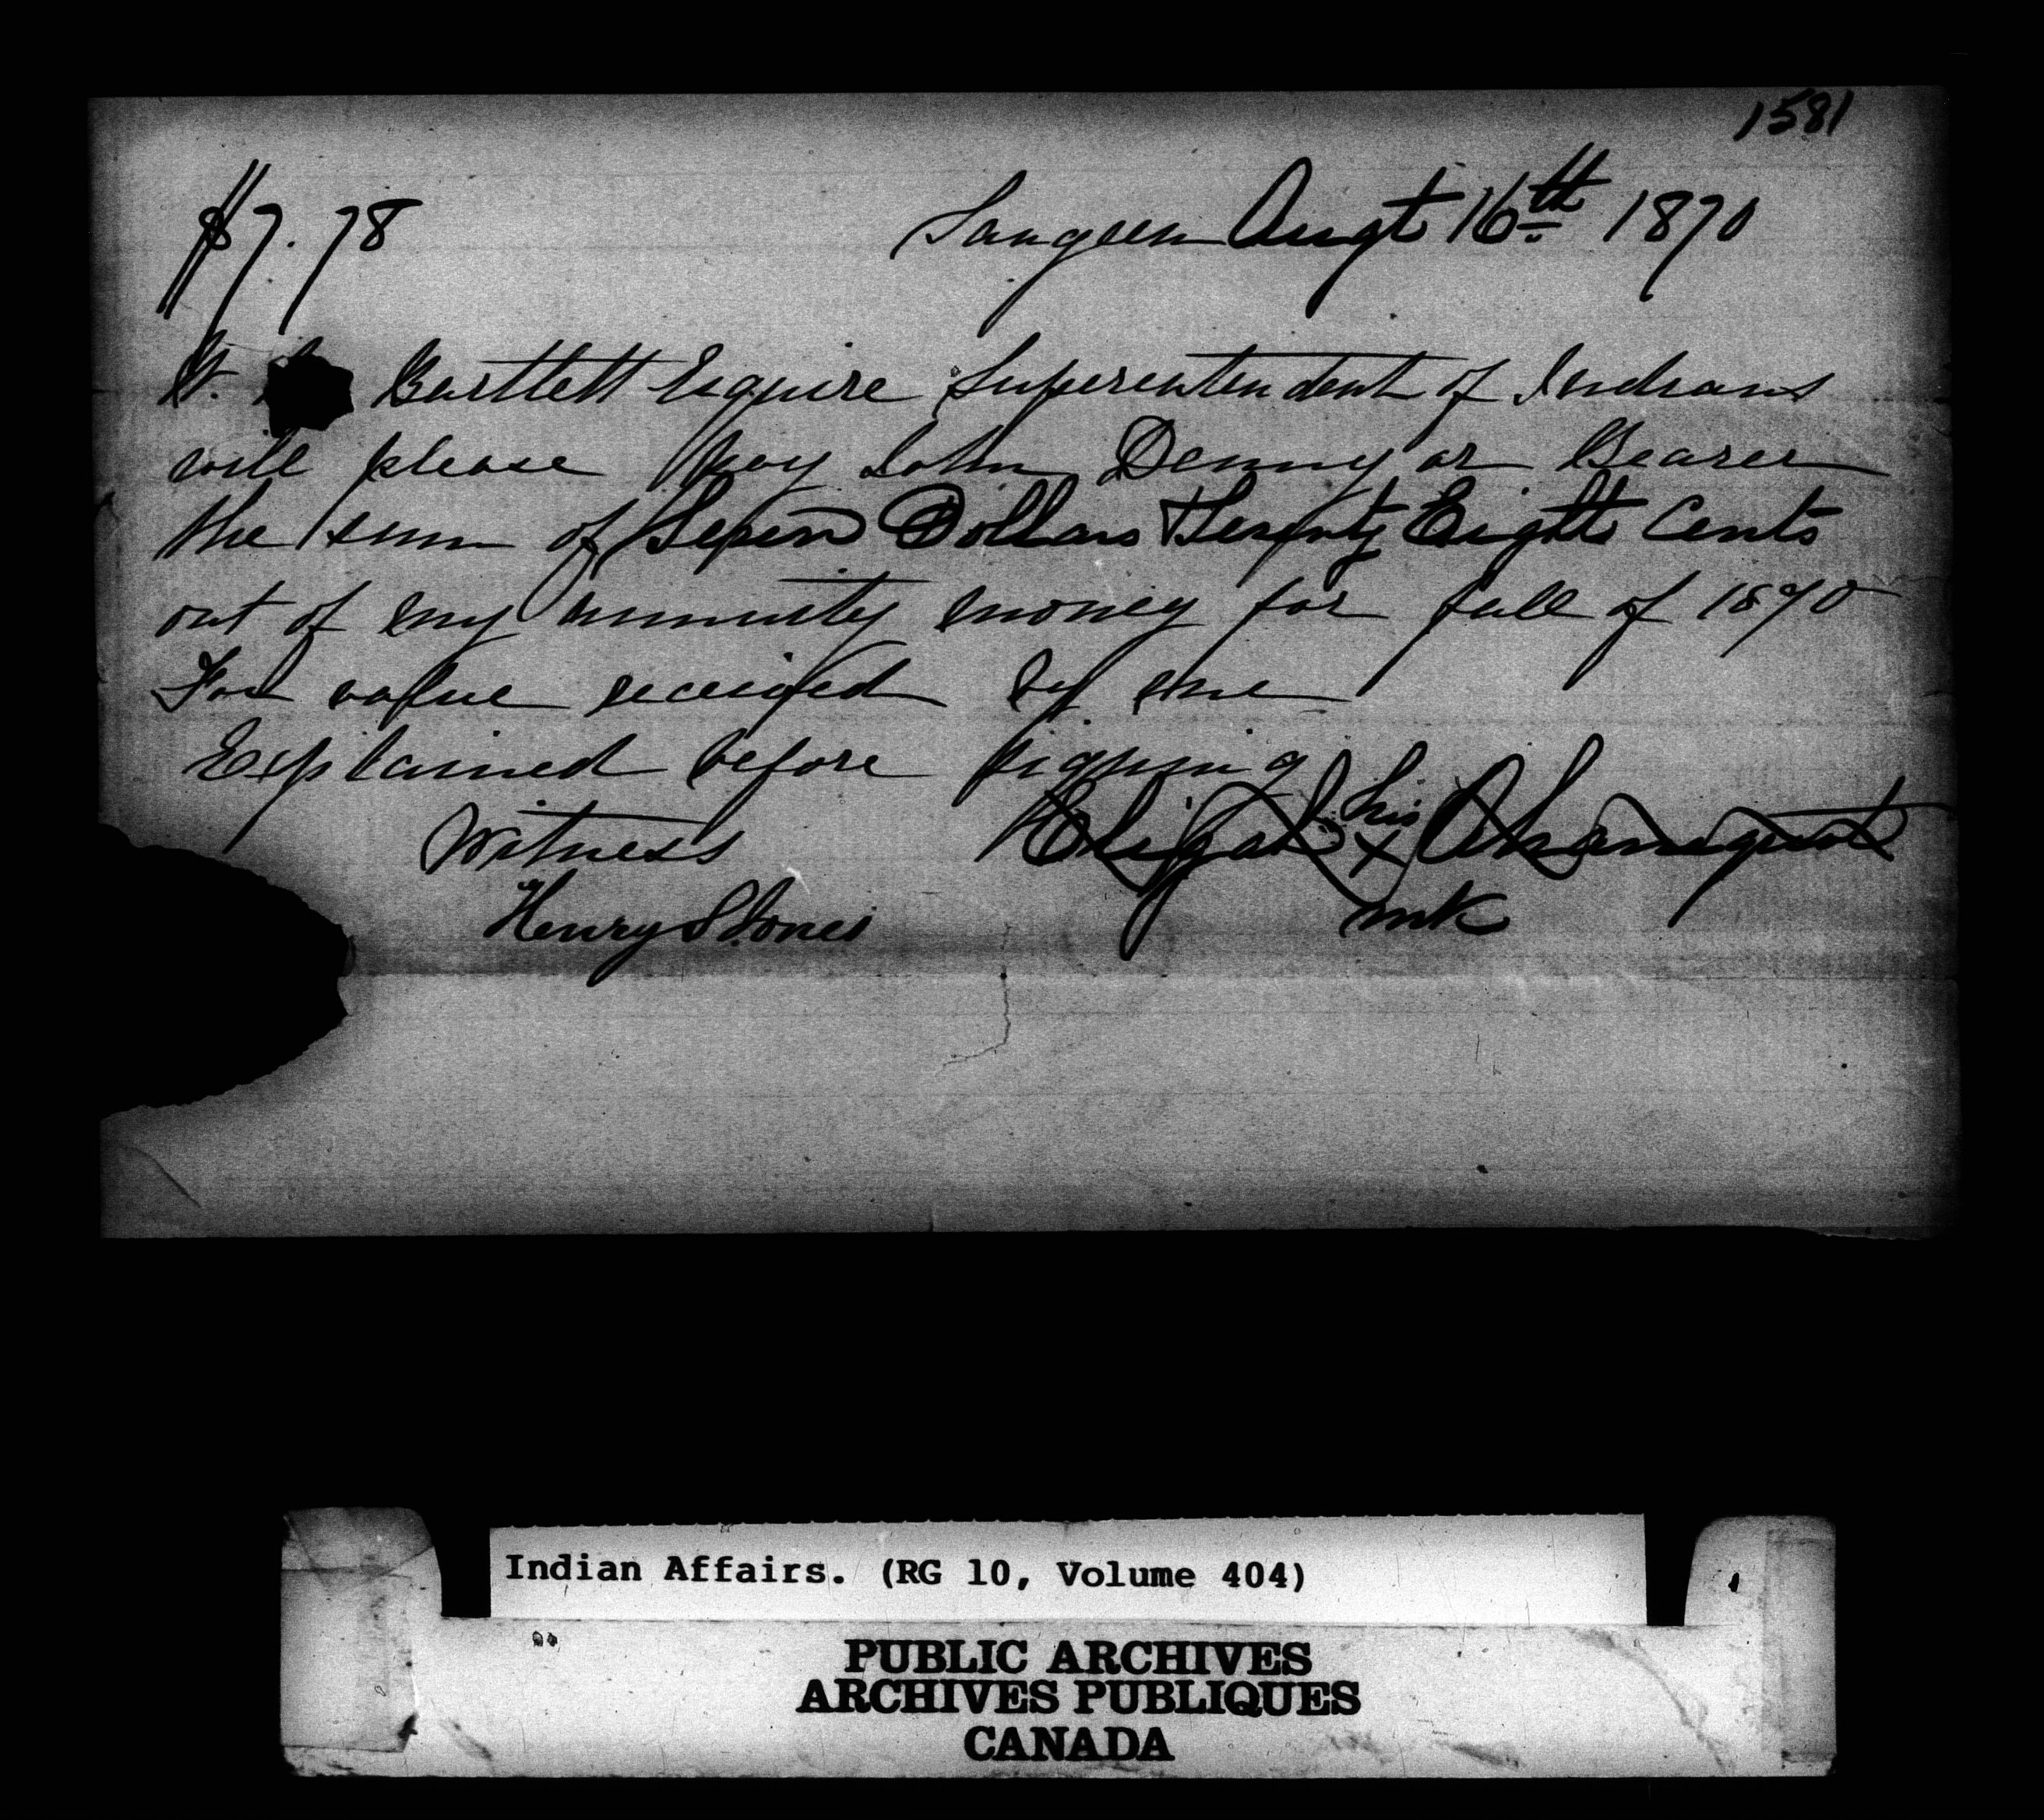 1581
$7.78 Saugeen Augt 16th 1870
W. Bartlett Esquire Superentendent of Indians
will please pay John Denny or Bearer
the sum of Seven Dollars Seventy Eight Cents
out of my annuity money for fall of 1870
For value received by me
Explained before signing
Witness Elijah his x Ahaniquot
Henry H Jones mk
Indian Affairs. (RG 10, Volume 404)
PUBLIC ARCHIVES
ARCHIVES PUBLIQUES
CANADA